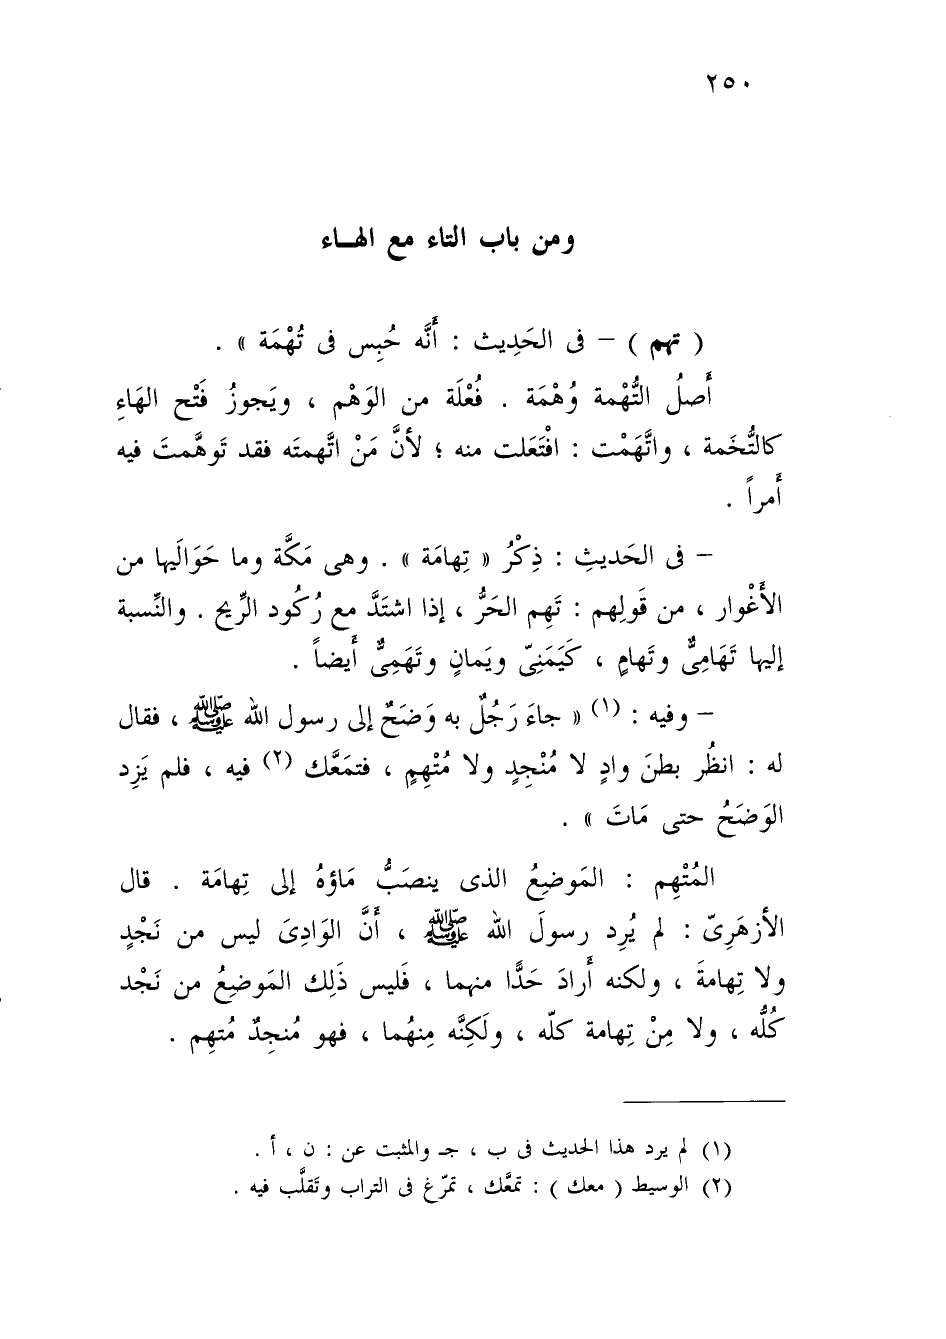 ٢٥٠
ومن باب التاء مع الهـاء
( تهم ) – فى الحَدِيث : أَنَّه حُبِس فى تُهْمَة » .
أَصلُ التُّهْمة وُهْمَة . فُعْلَة من الوَهْم ، ويَجوزُ فَتْح الهَاءِ
كالتُّخَمة ، واتَّهَمْت : افْتَعَلت منه ؛ لأنَّ مَنْ اتَّهمتَه فقد تَوهَّمتَ فيه
أَمراً .
– فى الحَديثِ : ذِكْرُ « تِهامَة » . وهى مَكَّة وما حَوَالَيها من
الأَغْوار ، من قَولِهم : تَهِم الحَرُّ ، إذا اشتَدَّ مع رُكُود الرِّيح . والنِّسبة
إليها تَهَامِىٌّ وتَهامٍ ، كَيَمَنِىّ ويَمانٍ وتَهَمِىٌّ أَيضاً .
– وفيه : (١) « جاءَ رَجُلٌ به وَضَحٌ إلى رسول الله ﷺ ، فقال
له : انظُر بطنَ وادٍ لا مُنْجِدٍ ولا مُتْهِمٍ ، فتمَعَّك (٢) فيه ، فلم يَزِد
الوَضَحُ حتى مَاتَ » .
المُتْهِم : المَوضِعُ الذى ينصَبُّ مَاؤهُ إلى تِهامَة . قال
الأزهَرِىّ : لم يُرِد رسولَ الله ﷺ ، أَنَّ الوَادِىَ ليس من نَجْدٍ
ولا تِهامةَ ، ولكنه أَرادَ حَدًّا منهما ، فَليس ذَلِك المَوضِعُ من نَجْد
كُلُّه ، ولا مِنْ تِهامة كلّه ، ولَكِنَّه مِنهُما ، فهو مُنجِدٌ مُتهِم .
(١) لم يرد هذا الحديث فى ب ، جـ والمثبت عن : ن ، أ .
(٢) الوسيط ( معك ) : تمعَّك ، تمرّغ فى التراب وتَقلَّب فيه .